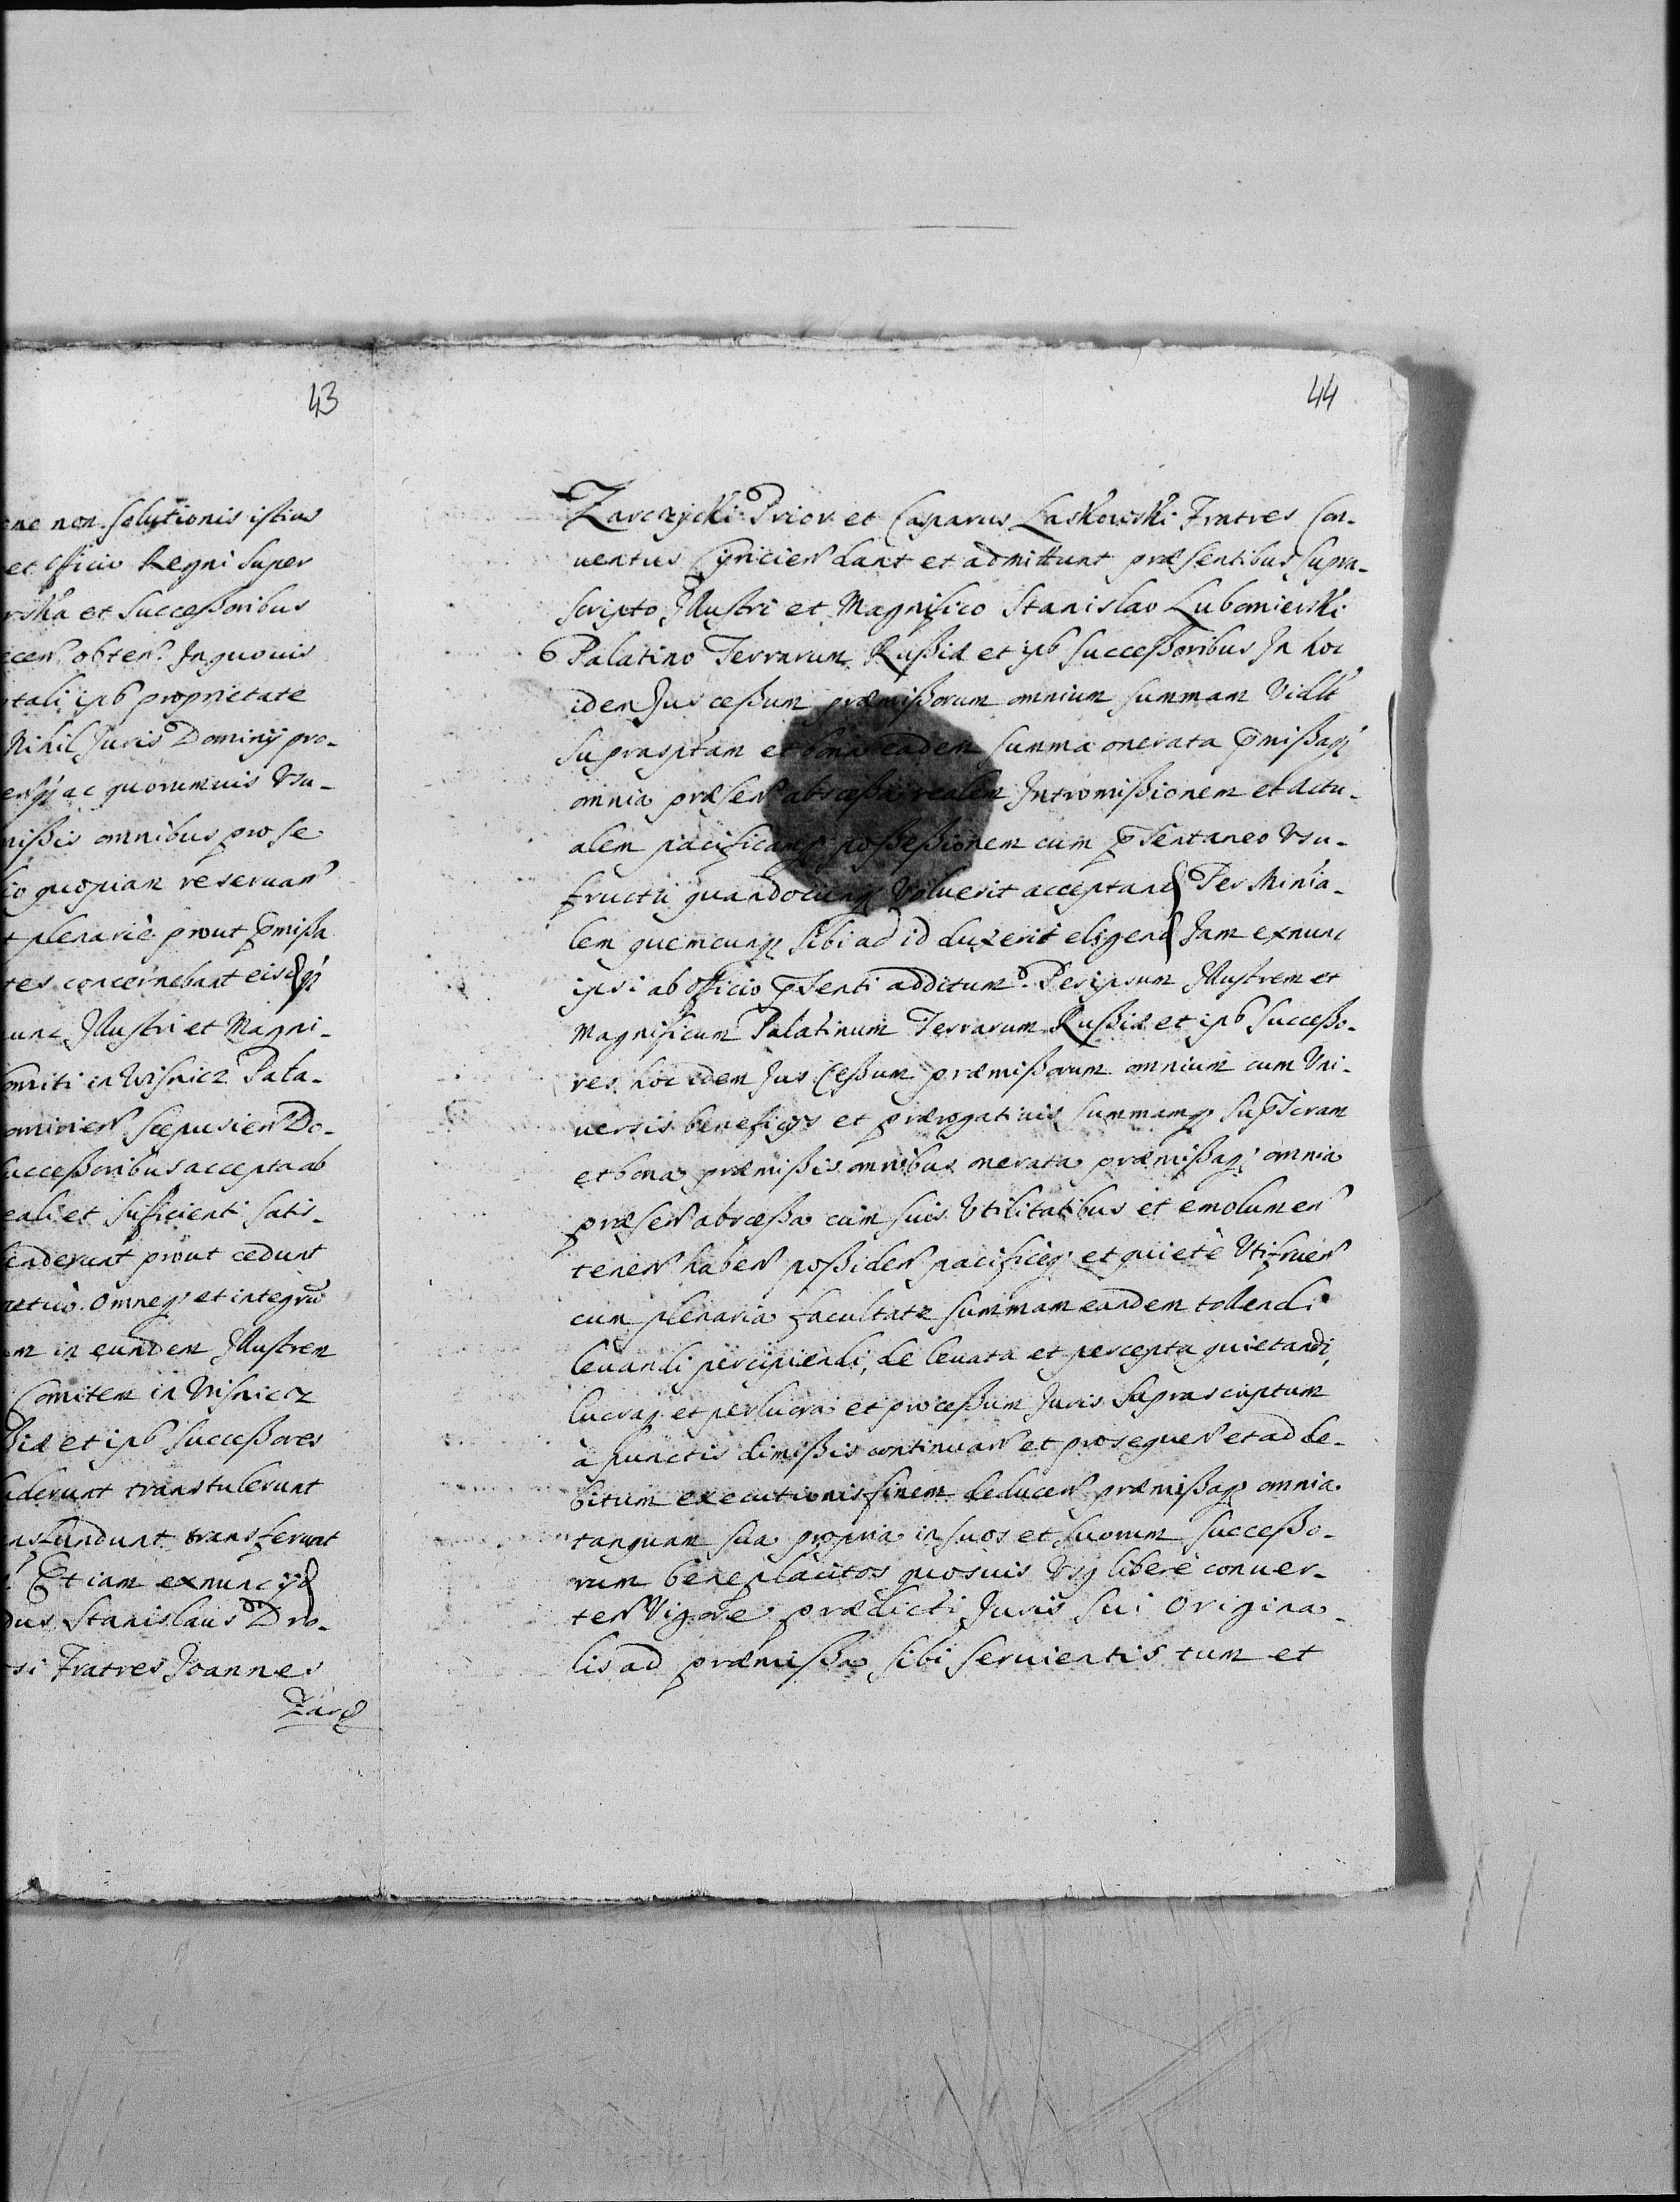 43
ne non solutionis istius
et officio Regni super
rska et successoribus
cen obten. In quouis
tali ipß proprietate
Nihil Juris Dominij pro-
ac quorumuis vsu-
mißis omnibus pro se
io quopiam reseruan
t plenariè prout pmißa
tes concernebant eisdqz
unc Illustri et Magni-
omiti in Wisnicz Pala-
omirien Scepusien Do-
uccessoribus accepta ab
eali et sufficienti satis-
enderunt prout cedunt
etuò. Omneqz et integrũ
m in eundem Illustrem
Comitem in Wisnicz
ßiæ et ipß Successores
derunt transtulerunt
nsfundunt transferunt
Et iam exnunc ijd
dus Stanislaus Dro-
si Fratres Joannes
Zarcz
44
Zarczycki Prior et Casparus Laskowski Fratres Con-
uentus Cyricien dant et admittunt præsentibus supra-
scripto Illustri et Magnifico Stanislao Lubomierski
Palatino Terrarum Rußiæ et ipß successoribus In hoc
idem Jus ceßum præmißorum omnium summam Vidlt
suprasptam et bona eadem summa onerata pmißaqz
omnia præsen abrceßa realem Intromißionem et actu-
alem pacificamqz poßeßionem cum psentaneo vsu-
fructu quandocunqz voluerit acceptand Per Minia-
lem quemcunqz sibi ad id duxerit eligend Jam exnunc
ipsi ab officio psenti additum. Per ipsum Illustrem et
Magnificum Palatinum Terrarum Rußiæ et ipß Succeßo-
res hoc idem Jus Ceßum præmißorum omnium cum Vni-
uersis beneficijs et prærogatiuis summamqz supscram
et bona præmißis omnibus onerata præmißaqz omnia
præsen abrceßa cum suis Vtilitatibus et emolumen
tenen haben poßiden pacificèqz et quietè Vtifruen
cum plenaria facultate summam eandem tollendi
leuandi percipiendi, de leuata et percepta quietandi,
lucraqz et perlucra et proceßum Juris suprascriptum
à punctis dimißis continuan et prosequen et ad de-
bitum executionis finem deducen præmißaqz omnia
tanquam sua propria in suos et suorum succeßo-
rum beneplacitos quosuis vsqz liberè conuer-
ten Vigore prædicti Juris sui origina-
lis ad præmißa sibi seruientis tum et